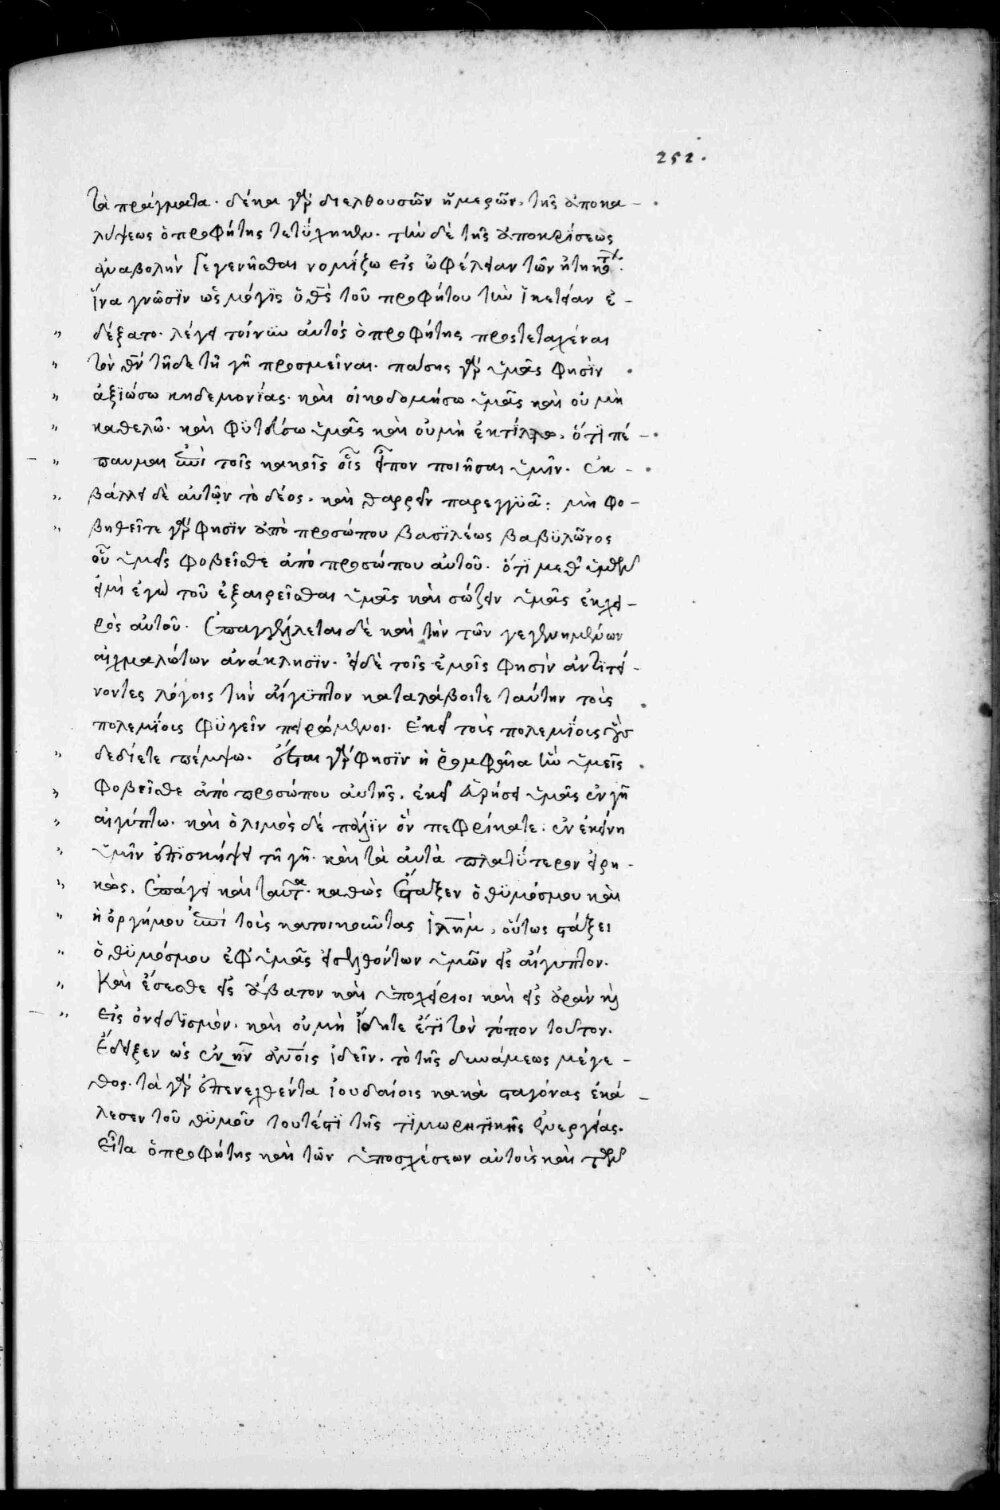 252.
τὰ πράγματα· δέκα γὰρ διελθουσῶν ἡμερῶν, τῆς ἀποκα-
λύψεως ὁ προφήτης τετύχηκεν. τὴν δὲ τῆς ἀποκρίσεως
ἀναβολὴν γεγενῆσθαι νομίζω εἰς ὠφέλειαν τῶν
ἵνα γνῶσϊν ὡς μόγϊς ὁ θς τοῦ προφήτου τὴν ἱκετείαν ἐ-
δέξατο. λέγει τοίνυν αὐτὸς ὁ προφήτης προστεταχέναι
τὸν θν τῇδε τῇ γῇ προσμεῖναι. πάσης γὰρ ὑμᾶς φησὶν
ἀξϊώσω κηδεμονίας. καὶ οἰκοδομήσω ὑμᾶς καὶ οὐ μὴ
καθελῶ. καὶ φϋτεύσω ὑμᾶς καὶ οὐ μὴ ἐκτίλλω, ὅτϊ πέ-
παυμαι ἐπὶ τοῖς κακοῖς οἷς εἶπον ποιῆσαι ὑμῖν. ἐκ-
βάλλει δὲ αὐτῶν τὸ δέος. καὶ θαρρεῖν παρεγγϋᾷ: μὴ φο-
βηθεῖτε γὰρ φησϊν ἀπὸ προσώπου βασϊλέως βαβϋλῶνος
οὗ ὑμεῖς φοβεῖσθε ἀπὸ προσώπου αὐτοῦ. ὅτϊ μεθ' ὑμῶν
εἰμὶ ἐγὼ τοῦ ἐξαιρεῖσθαι ὑμᾶς καὶ σώζειν ὑμᾶς ἐκ χει-
ρὸς αὐτοῦ. ἐπαγγέλλεται δὲ καὶ τὴν τῶν γεγενημένων
αἰχμαλώτων ἀνάκλησϊν. εἰ δὲ τοῖς ἐμοῖς φησὶν ἀντϊτεί-
νοντες λόγοις τὴν αἴγϋπτον καταλάβοιτε ταύτην τοὺς
πολεμΐους φϋγεῖν πειρώμενοι. ἐκεῖ τοὺς πολεμΐους οὓς
δεδίετε πέμψω. ἔσται γὰρ φησϊν ἡ ῥομφαία ἣν ὑμεῖς
φοβεῖσθε ἀπὸ προσώπου αὐτῆς, ἐκεῖ εὑρήσει ὑμᾶς ἐν γῇ
αἰγύπτω. καὶ ὁ λιμὸς δὲ πάλϊν ὃν πεφρίκατε: ἐν ἐκείνῃ
ὑμῖν ἐπϊσκήψει τῇ γῇ. καὶ τὰ αὐτὰ πλατύτερον εἰρη-
κὼς, ἐπάγει καὶ ταῦτα. καθὼς ἔσταξεν ὁ θϋμόσμου καὶ
ἡ ὀργήμου ἐπὶ τοὺς κατοικοῦντας ἱλημ, οὕτως στάξει
ὁ θϋμόσμου ἐφ' ὑμᾶς εἰσελθόντων ὑμῶν εἰς αἴγυπτον.
Καὶ ἔσεσθε εἰς ἄβατον καὶ ὑποχείριοι καὶ εἰς ἀρὰν καὶ
εἰς ὀνειδϊσμὸν. καὶ οὐ μὴ ἴδητε ἔτϊ τὸν τόπον τοῦτον.
ἔδειξεν ὡς ἐν ἦν αὐτοῖς ἰδεῖν. τὸ τῆς δυνάμεως μέγε-
θος. τὰ γὰρ ἐπενεχθέντα ἰουδαίοις κακὰ σταγόνας ἐκά-
λεσεν τοῦ θϋμοῦ τουτέστϊ τῆς τϊμωρητϊκῆς ἐνεργείας.
εἶτα ὁ προφήτης καὶ τῶν ὑποσχέσεων αὐτοὺς καὶ τῶν